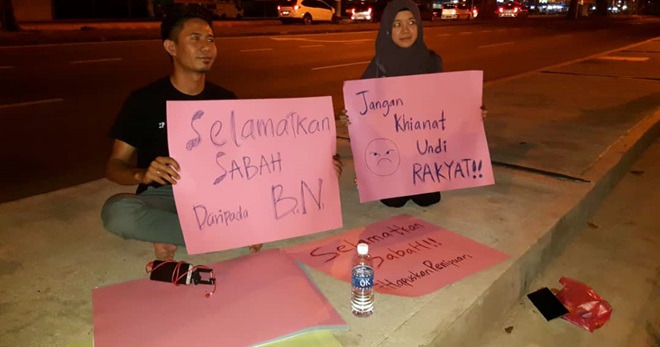 Selamatkan
SABAH
Daripada B.N.
Jangan
Khianat
Undi
RAKYAT!!
Selamatkan
Sabah!!
Hapuskan
OK